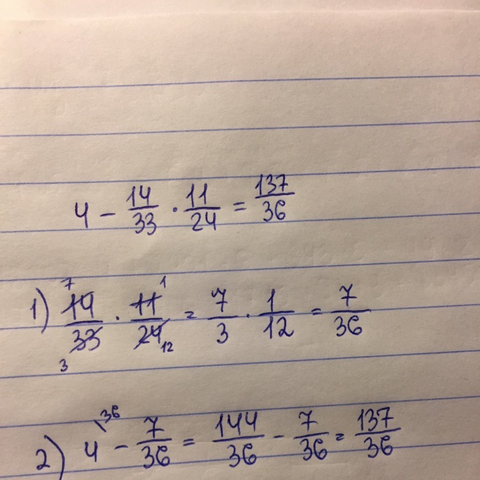 4 - 14/33 · 11/24 = 137/36
1) 14/33 · 11/24 = 7/3 · 1/12 = 7/36
2) 4 - 7/36 = 144/36 - 7/36 = 137/36